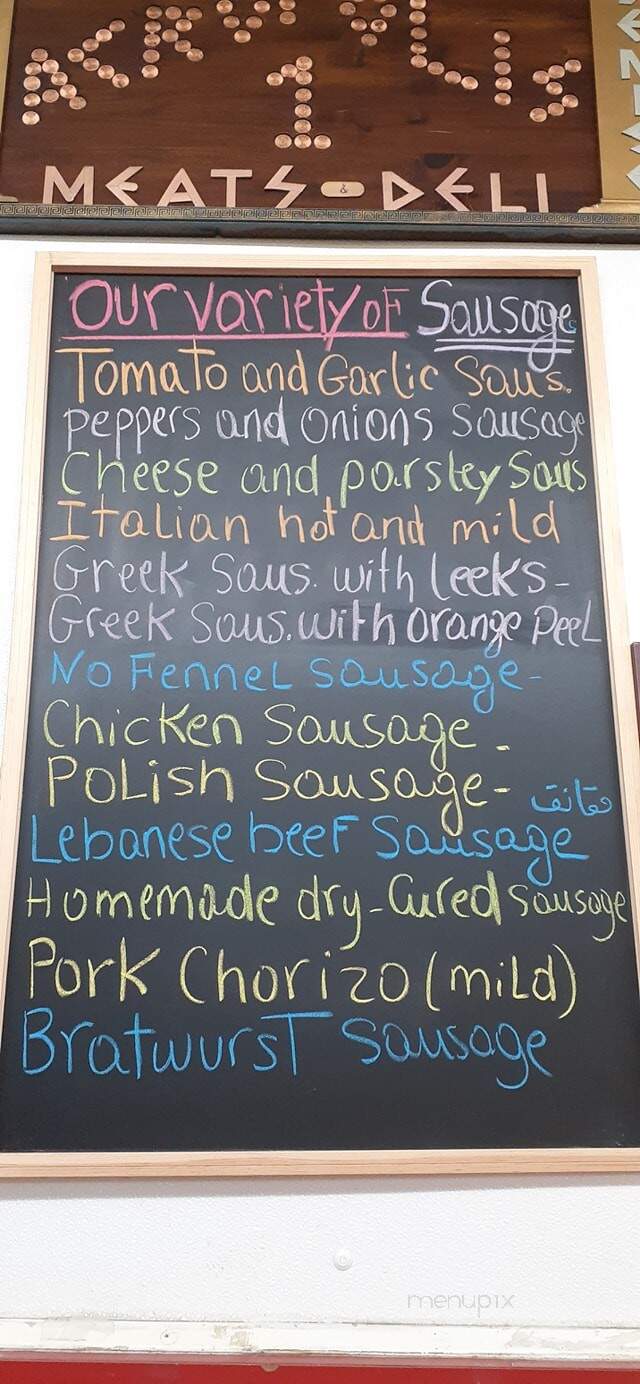 1
MEATS & DELI
Our variety of Sausages
Tomato and Garlic Saus.
peppers and onions Sausage
Cheese and parsley Saus
Italian hot and mild
Greek Saus. with Leeks-
Greek Saus. with orange PeeL
No Fennel Sausage-
Chicken Sausage -
Polish Sausage-
نقانق
Lebanese beef Sausage
Homemade dry-Cured sausage
Pork Chorizo (mild)
Bratwurst Sausage
menupix